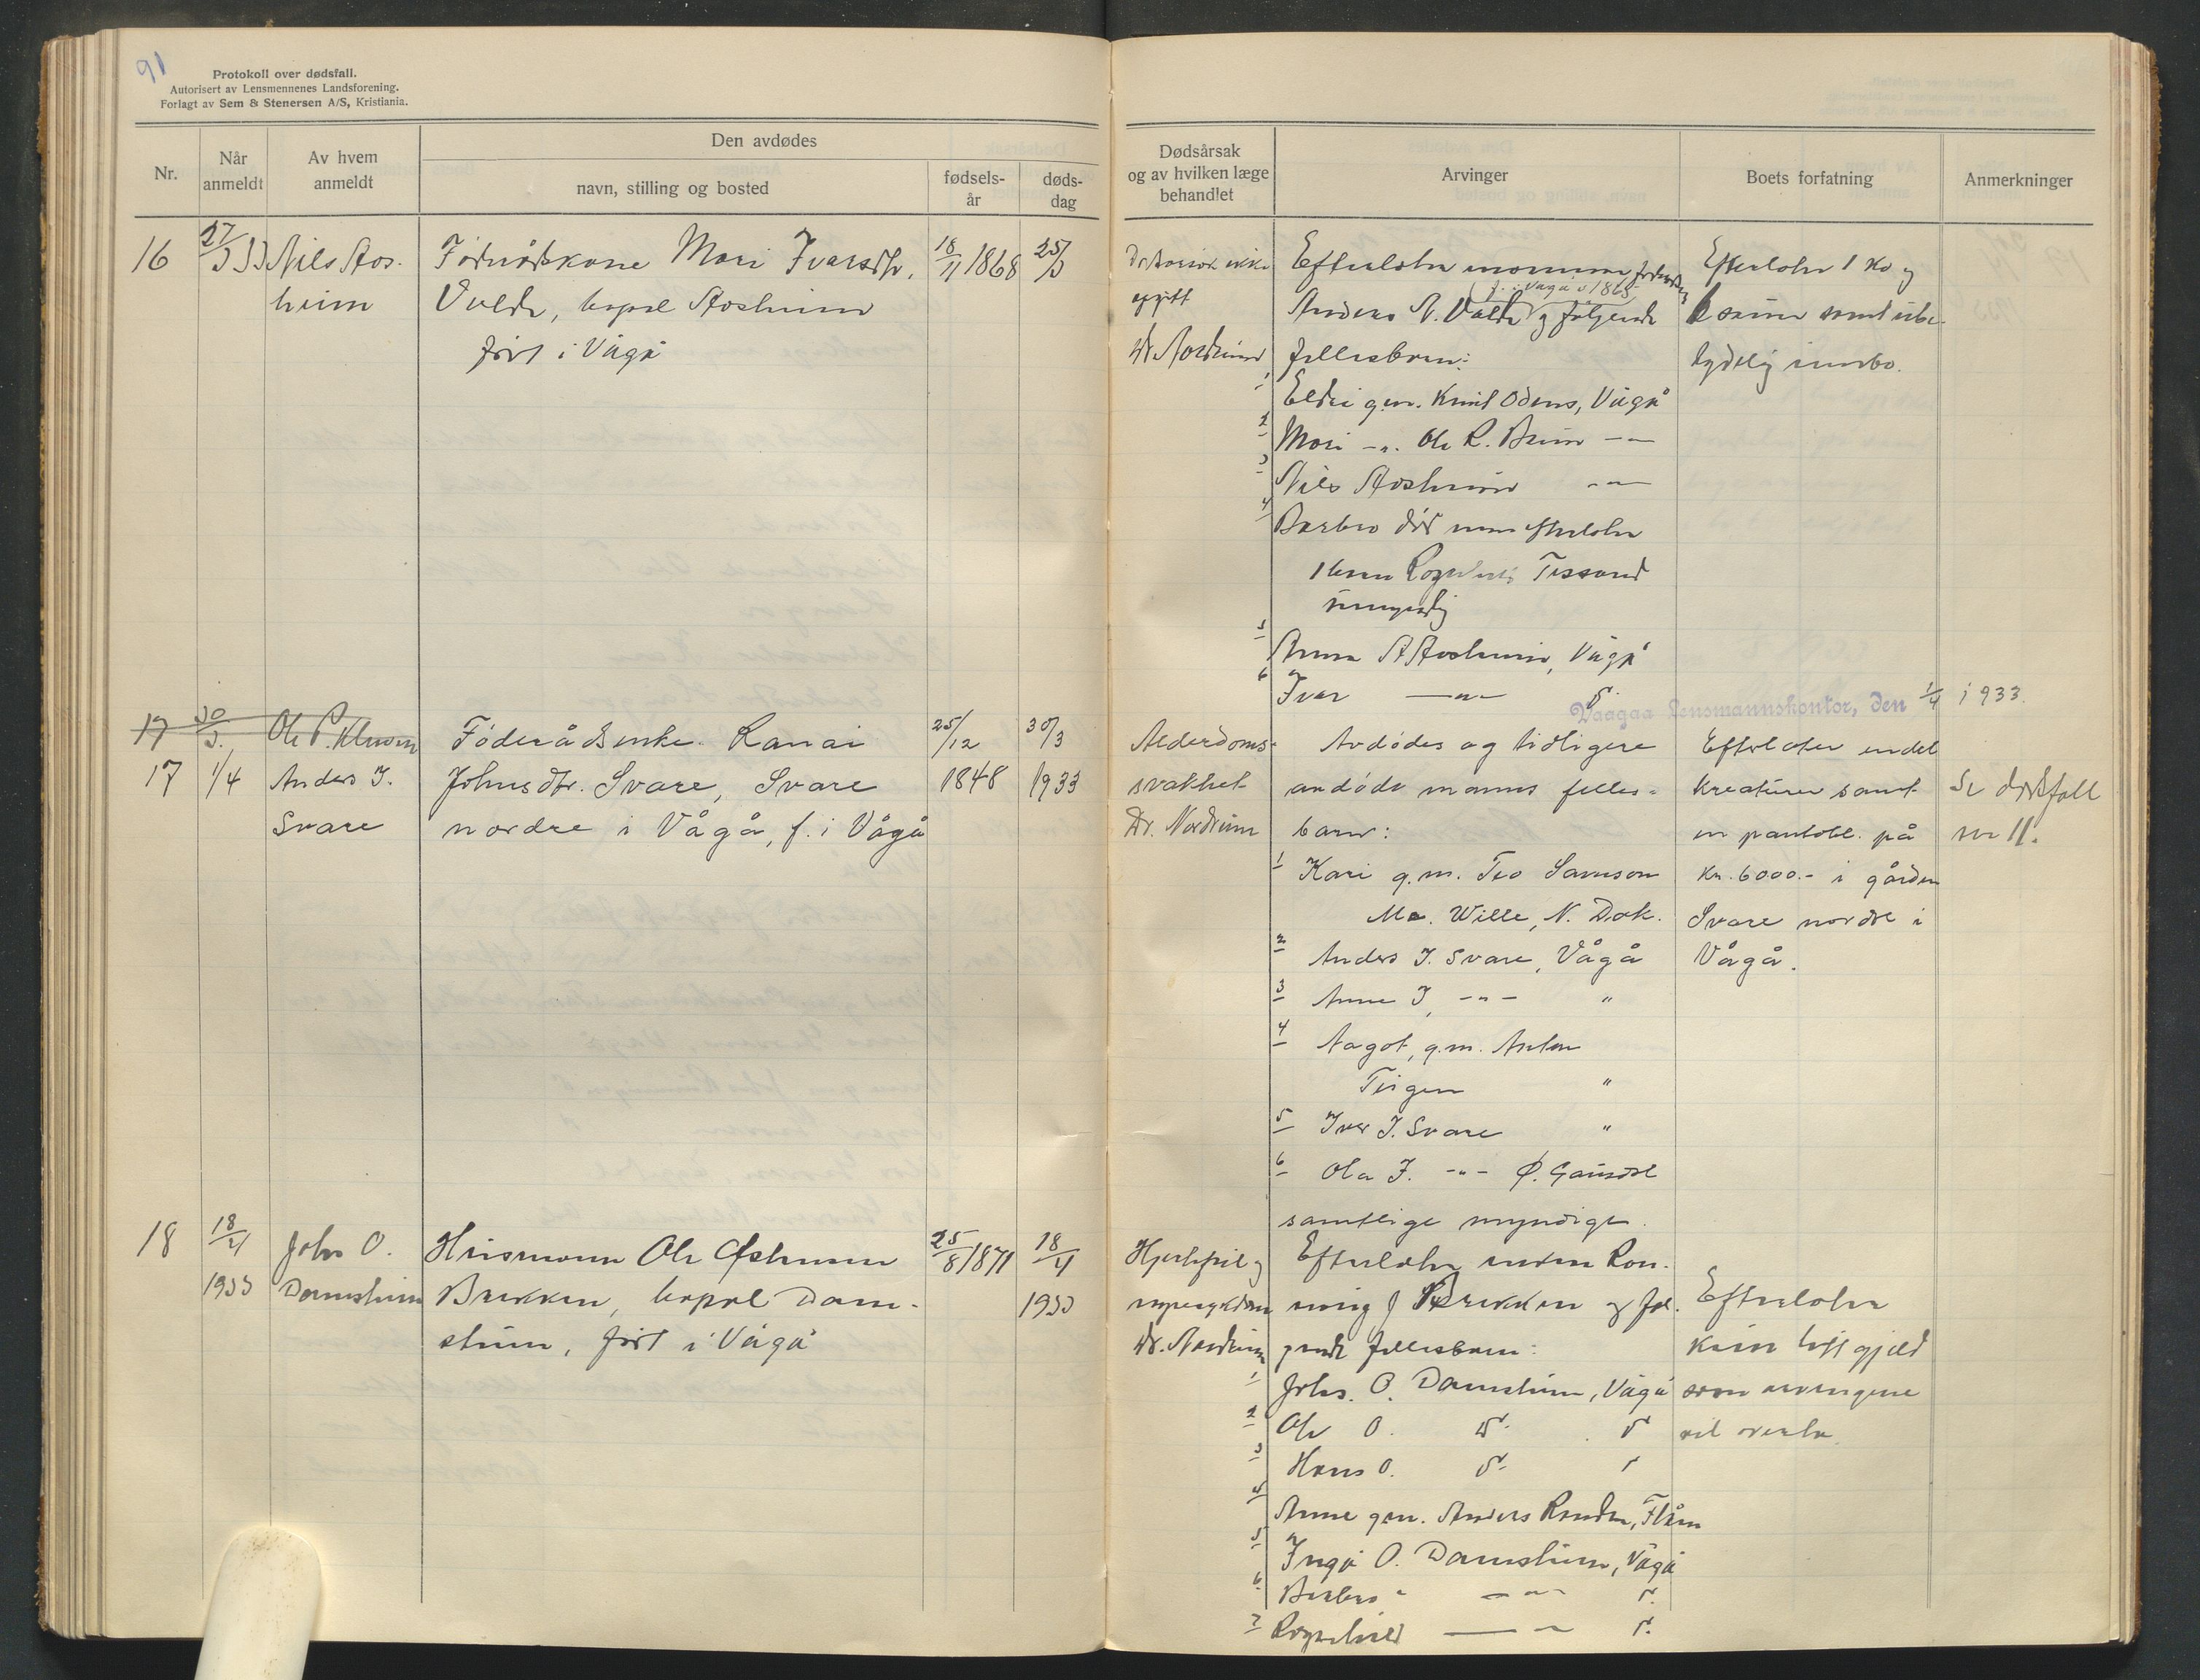 91
Protokoll over dødsfall.
Autorisert av Lensmennenes Landsforening.
Forlagt av Sem & Stenersen A/S, Kristiania.
Nr.
Når anmeldt
Av hvem anmeldt
Den avdødes
navn, stilling og bosted
fødsels-år
døds-dag
Dødsårsak og av hvilken læge behandlet
Arvinger
Boets forfatning
Anmerkninger
16
27/3 33
Nils Aos-
heim
Føderådskone Mari Iversdtr.
Valde, bopel Aosheim
født i Vågå
18/11 1868
25/3
Dødsårsak ikke
opgitt
Dr. Nordrum
Efterlater mannen
Anders N. Valde og følgende
fellesbarn:
1 Eldri g.m. Knut Odens, Vågå
2 Mari -"- Ole R. Bruin -"-
3 Nils Aosheim -"-
4 Barbro død men efterlater
1 barn Tessand
umyndig
5 Anna A Aosheim, Vågå
6 Iver -"- d.
Efterlater 1 ko og
6 sauer samt ube-
tydelig innbo.
Vaagaa lensmannskontor, den 1/4 1933.
17 30/3. Ole P. Klevem
17
1/4
Anders I.
Svare
Føderådsenke Ranai
Johnsdtr. Svare, Svare
nordre i Vågå, f. i Vågå
25/12
1848
30/3
1933
Alderdoms-
svakhet
Dr. Nordrum
Avdødes og tidligere
avdøde manns felles-
barn:
1 Kari g.m. Teo Samson
Mc. Wille, N. Dak.
2 Anders I. Svare, Vågå
3 Anne I, -"- "
4 Aagot, g.m. Anton
Teigen "
5 Iver I. Svare "
6 Ola I. -"- Ø. Gausdal
samtlige myndige.
Efterlater endel
kreaturer samt
en pantobl. på
kr. 6000.- i gården
Svare nordre i
Vågå.
Se dødsfall
nr 11.
18
18/4
1933
John O.
Damsheim
Husmann Ole Østensen
Brekken, bopel Dam-
sheim, født i Vågå
25/8 1871
18/4
1933
Hjertefeil og
nyresykdom
Dr. Nordrum
Efterlater enken Ron-
naug f Brekken og føl-
gende fellesbarn:
1 Johs. O. Damsheim, Vågå
2 Ole O. d. d
3 Hans O. d.
4 Anne g.m. Anders Randen, Flåm
5 Inga O. Damsheim, Vågå
6 Barbro " -"- d.
7 Ragnhild -"- d.
Efterlater
kun litt gjeld
som arvingene
vil overta.